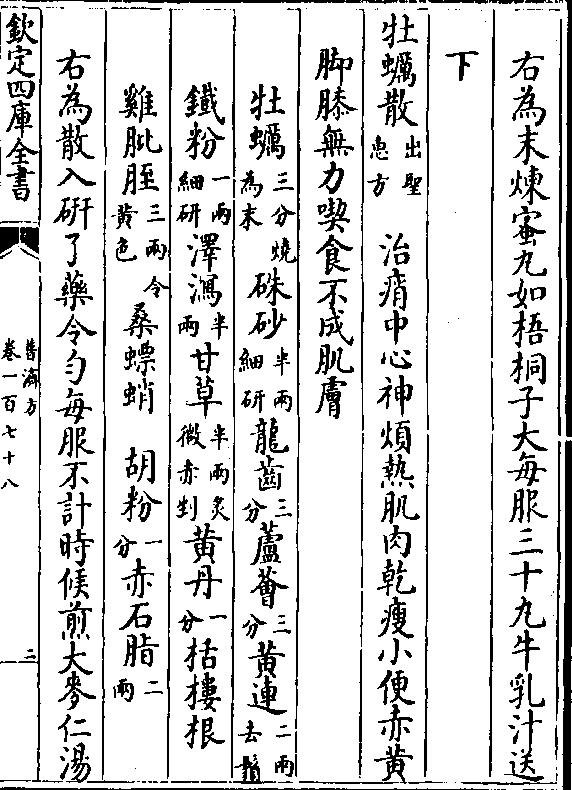 右為末煉蜜丸如梧桐子大每服三十九牛乳汁送
下
牡蠣散出聖惠方 治痟中心神煩熱肌肉乾瘦小便赤黄
脚膝無力喫食不成肌膚
牡蠣三分燒為末 硃砂半兩細研 龍齒三分 蘆薈三分 黄連二兩去鬚
鐵粉一兩細研 澤瀉半兩 甘草半兩炙微赤剉 黄丹一分 栝樓根
雞肶胵三兩令黄色 桑螵蛸 胡粉一分 赤石脂二兩
右為散入硏了藥令勻每服不計時候煎大麥仁湯
欽定四庫全書
普濟方
卷一百七十八
三